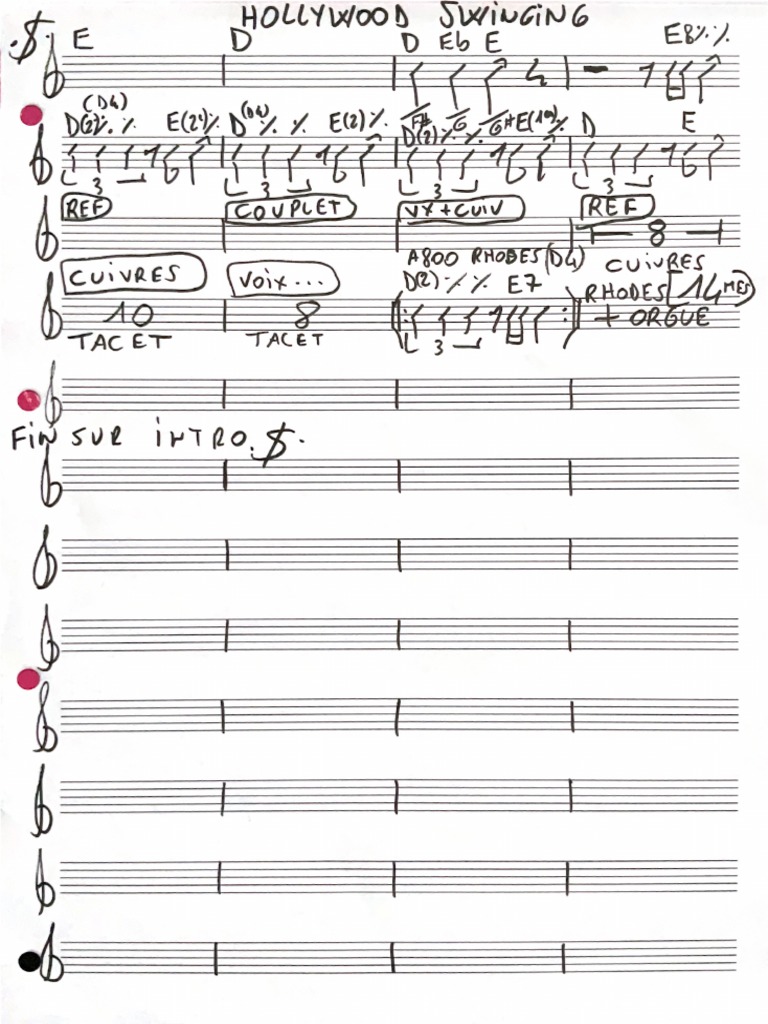 HOLLYWOOD SWINGING
.$. E D D Eb E E8 ٪ ٪
(D4) (D4) F# G G#
D(2) ٪ ٪ E(2) ٪ D ٪ ٪ E(2) ٪ D(2) ٪ ٪ E(10) ٪ D E
3 3 3 3
REF COUPLET VX + CUIV REF
8
A800 RHODES (D4) CUIVRES
CUIVRES VOIX... D(2) ٪ ٪ E7 RHODES [14 MES]
10 8 + ORGUE
TACET TACET 3
FIN SUR INTRO .$.